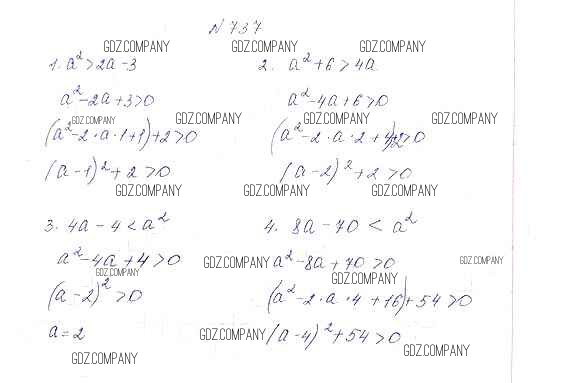 N 737
GDZ.COMPANY GDZ.COMPANY GDZ.COMPANY
1. a²>2a-3 2. a²+6>4a
a²-2a+3>0 a²-4a+6>0
GDZ.COMPANY GDZ.COMPANY GDZ.COMPANY
(a²-2·a·1+1)+2>0 (a²-2·a·2+4)+2>0
(a-1)²+2>0 (a-2)²+2>0
GDZ.COMPANY GDZ.COMPANY GDZ.COMPANY
3. 4a-4<a² 4. 8a-70<a²
a²-4a+4>0 GDZ.COMPANY a²-8a+70>0 GDZ.COMPANY
GDZ.COMPANY GDZ.COMPANY
(a-2)²>0 (a²-2·a·4+16)+54>0
a=2 GDZ.COMPANY (a-4)²+54>0
GDZ.COMPANY GDZ.COMPANY